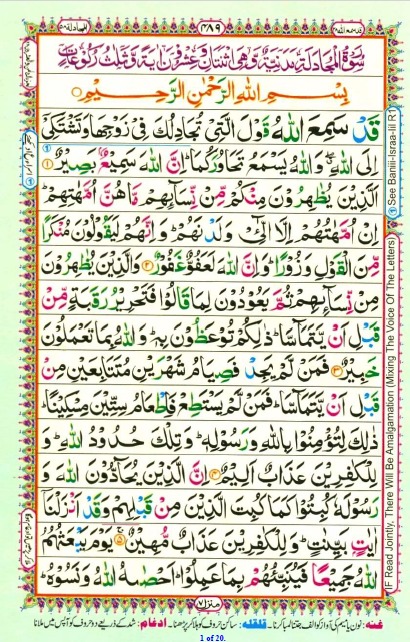 ٤٨٩
سُوْرَةُ الْمُجَادَلَةِ مَدَنِيَّةٌ وَّهِيَ اثْنَتَانِ وَعِشْرُوْنَ اٰيَةً وَّثَلٰثُ رُكُوْعَاتٍ
بِسْمِ اللهِ الرَّحْمٰنِ الرَّحِيْمِ
قَدْ سَمِعَ اللهُ قَوْلَ الَّتِيْ تُجَادِلُكَ فِيْ زَوْجِهَا وَتَشْتَكِيْٓ
اِلَى اللهِ ۖ وَاللهُ يَسْمَعُ تَحَاوُرَكُمَا ۚ اِنَّ اللهَ سَمِيْعٌۢ بَصِيْرٌ ۝١
اَلَّذِيْنَ يُظٰهِرُوْنَ مِنْكُمْ مِّنْ نِّسَآئِهِمْ مَّا هُنَّ اُمَّهٰتِهِمْ ۖ
اِنْ اُمَّهٰتُهُمْ اِلَّا الّٰٓئِيْ وَلَدْنَهُمْ ۚ وَاِنَّهُمْ لَيَقُوْلُوْنَ مُنْكَرًا
مِّنَ الْقَوْلِ وَزُوْرًا ۚ وَاِنَّ اللهَ لَعَفُوٌّ غَفُوْرٌ ۝٢ وَالَّذِيْنَ يُظٰهِرُوْنَ
مِنْ نِّسَآئِهِمْ ثُمَّ يَعُوْدُوْنَ لِمَا قَالُوْا فَتَحْرِيْرُ رَقَبَةٍ مِّنْ
قَبْلِ اَنْ يَّتَمَآسَّا ۚ ذٰلِكُمْ تُوْعَظُوْنَ بِهٖ ۚ وَاللهُ بِمَا تَعْمَلُوْنَ
خَبِيْرٌ ۝٣ فَمَنْ لَّمْ يَجِدْ فَصِيَامُ شَهْرَيْنِ مُتَتَابِعَيْنِ مِنْ
قَبْلِ اَنْ يَّتَمَآسَّا ۚ فَمَنْ لَّمْ يَسْتَطِعْ فَاِطْعَامُ سِتِّيْنَ مِسْكِيْنًا ۚ
ذٰلِكَ لِتُؤْمِنُوْا بِاللهِ وَرَسُوْلِهٖ ۚ وَتِلْكَ حُدُوْدُ اللهِ ۚ وَ
لِلْكٰفِرِيْنَ عَذَابٌ اَلِيْمٌ ۝٤ اِنَّ الَّذِيْنَ يُحَآدُّوْنَ اللهَ وَ
رَسُوْلَهٗ كُبِتُوْا كَمَا كُبِتَ الَّذِيْنَ مِنْ قَبْلِهِمْ وَقَدْ اَنْزَلْنَآ
اٰيٰتٍۭ بَيِّنٰتٍ ۚ وَلِلْكٰفِرِيْنَ عَذَابٌ مُّهِيْنٌ ۝٥ يَوْمَ يَبْعَثُهُمُ
اللهُ جَمِيْعًا فَيُنَبِّئُهُمْ بِمَا عَمِلُوْا ۚ اَحْصٰىهُ اللهُ وَنَسُوْهُ ۚ
منزل ٧
غنه: نون یا میم کی آواز کو الف جتنا لمبا کرنا۔ قلقله: ساکن حروف کو ہلا کر پڑھنا۔ ادغام: شد کے ذریعے دو حروف کو آپس میں ملانا
See Baniii-Israa-iil R
IF Read Jointly, There Will Be Amalgamation (Mixing The Voice Of The Letters)
1 of 20.